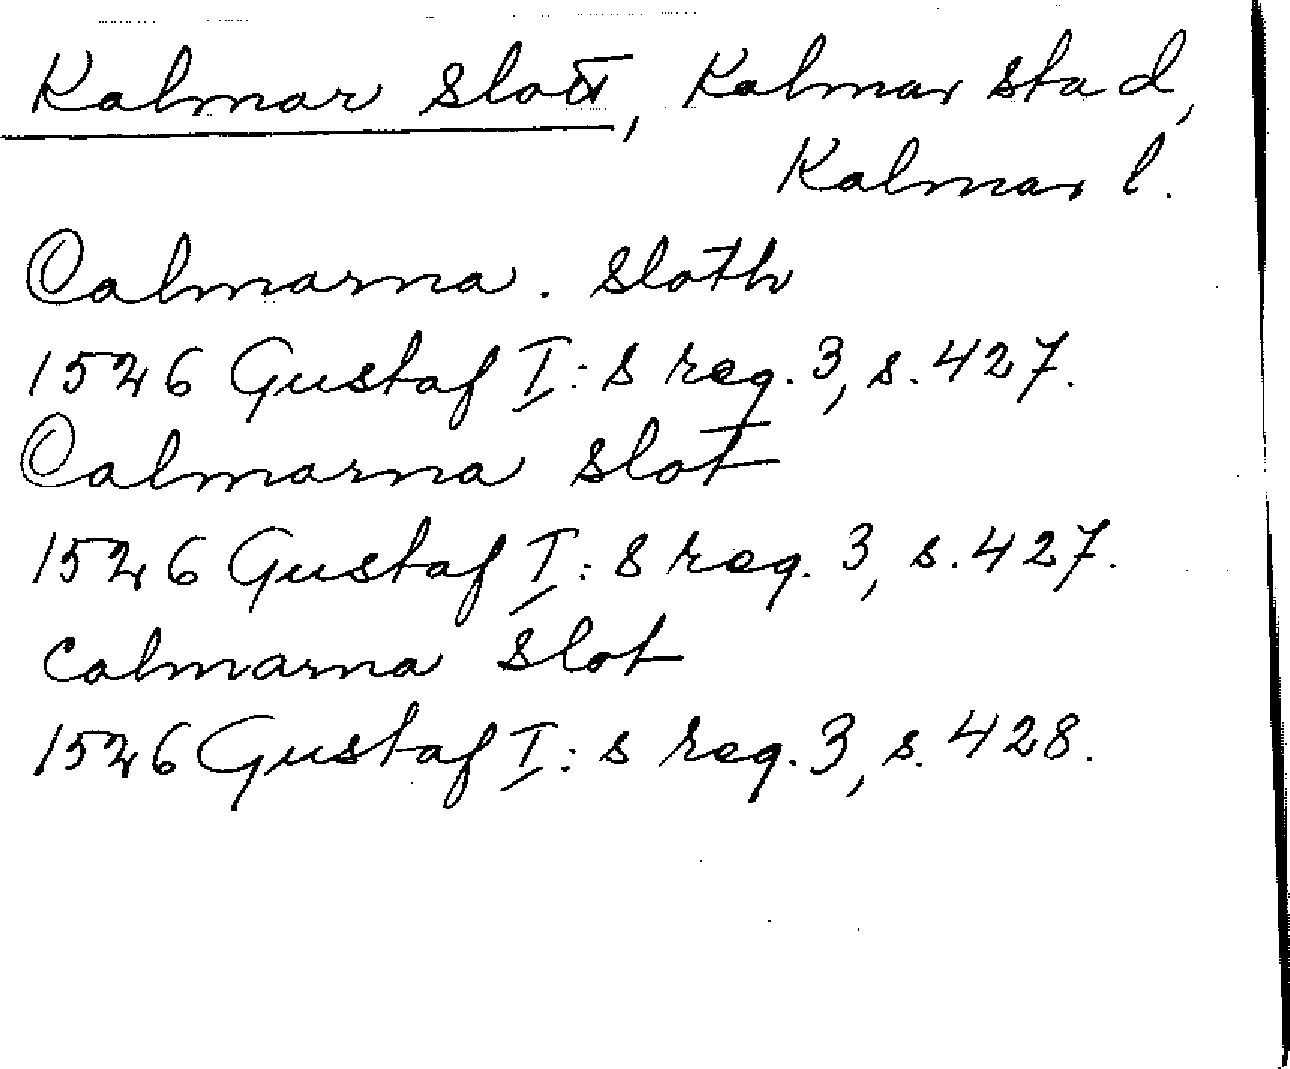 Kalmar Slott, Kalmar stad,
Kalmar l.
Calmarna. Sloth
1526 Gustaf I:s reg. 3, s. 427.
Calmarna Slot
1526 Gustaf I:s reg. 3, s. 427.
calmarna Slot
1526 Gustaf I:s reg. 3, s. 428.